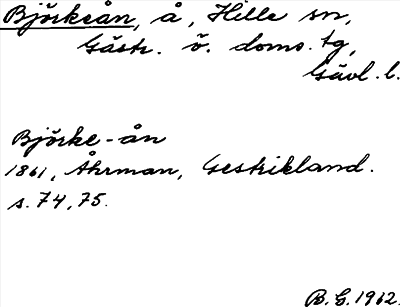 Björkeån, å, Hille sn,
Gästr. ö. doms. tg,
Gävl. l.
Björke-ån
1861, Åhrman, Gestrikland.
s. 74, 75.
B.G. 1962.